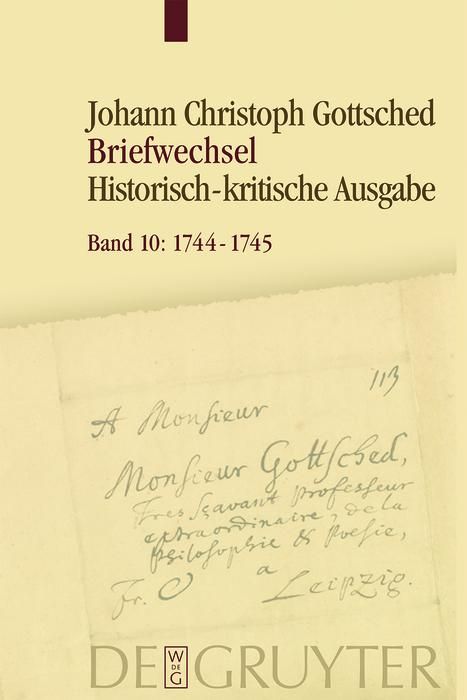 Johann Christoph Gottsched
Briefwechsel
Historisch-kritische Ausgabe
Band 10: 1744-1745
113
A Monsieur
Monsieur Gottsched,
Tres Sçavant Professeur
extraordinaire, de la
Philosophie & Poesie,
Fr. O a Leipzig.
DE GRUYTER
W
DE
G